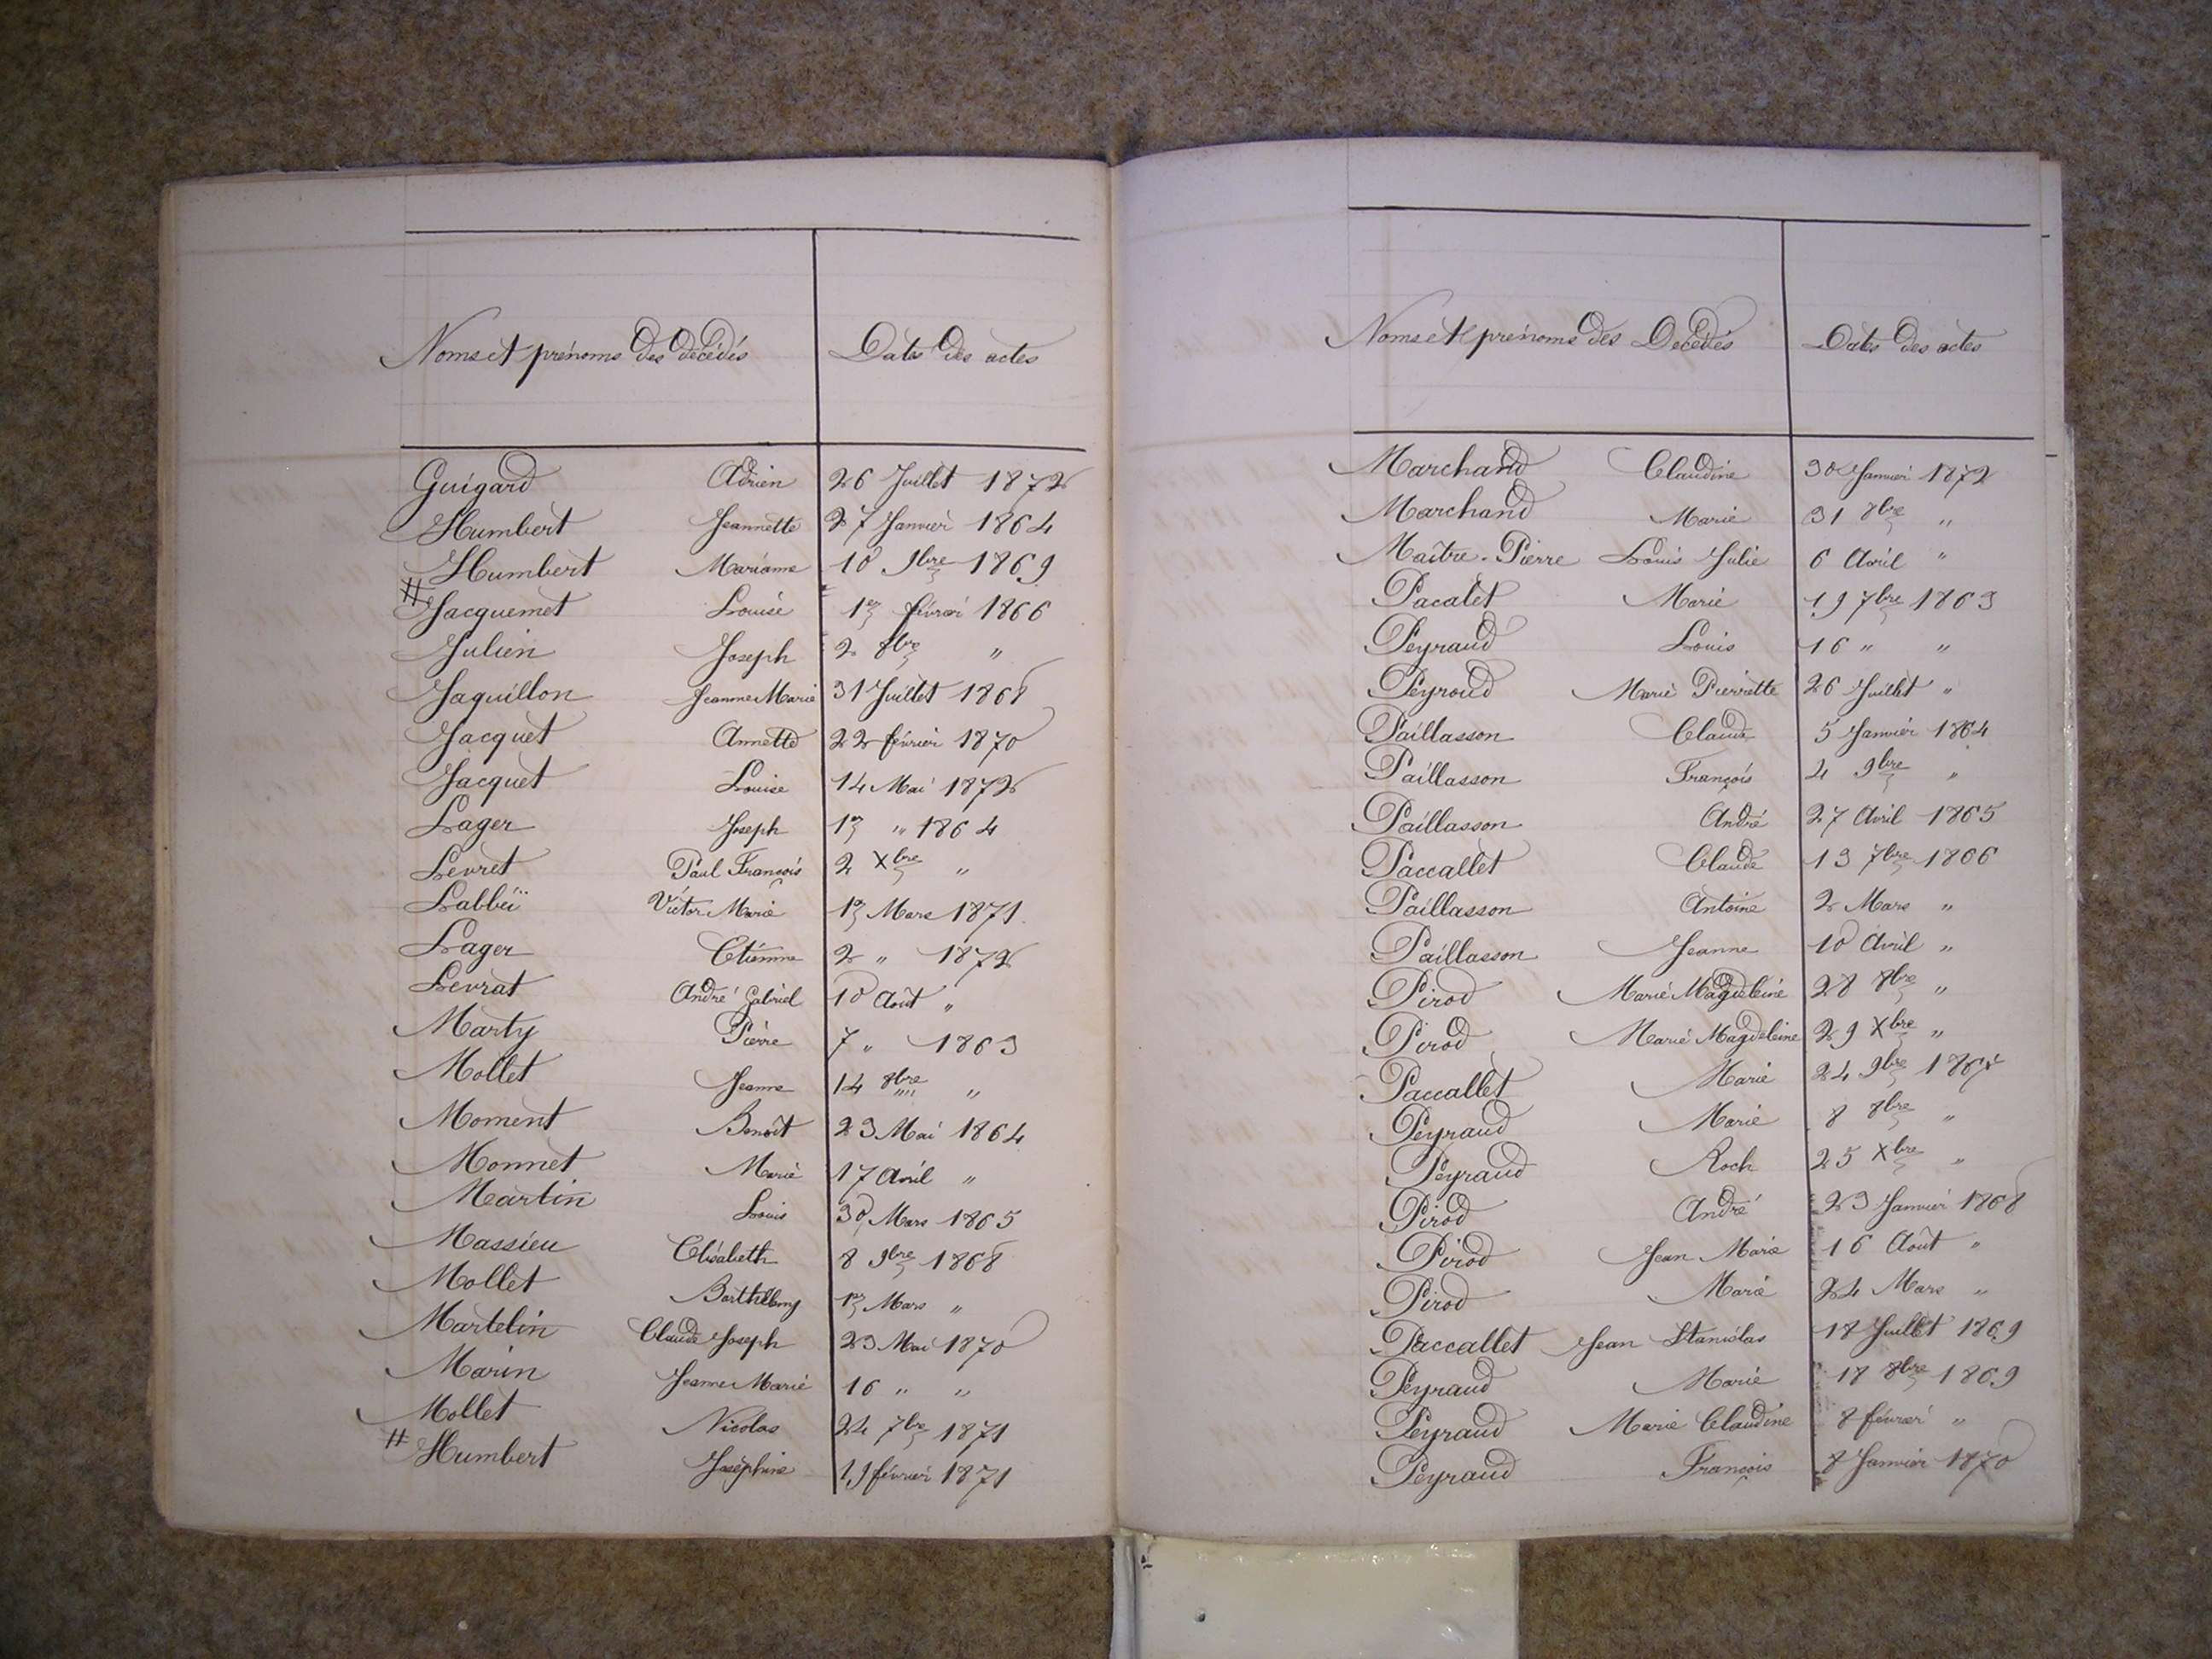 Noms et prénoms des décédés Dates des actes
Guigard Adrien 26 Juillet 1872
Humbert Jeannette 27 Janvier 1864
Humbert Marianne 10 9bre 1869
# Jacquemet Louise 1er février 1866
Julien Joseph 2 8bre "
Jaquillon Jeanne Marie 31 Juillet 1868
Jacquet Annette 22 février 1870
Jacquet Louise 14 Mai 1872
Lager Joseph 1er " 1864
Levret Paul François 2 Xbre "
Victor Marie 1er Mars 1871
Lager Etienne 2 " 1872
Levrat André Gabriel 10 Août "
Marty Pierre 7 " 1863
Mollet Jeanne 14 8bre "
Moment Benoît 23 Mai 1864
Monnet Marie 17 Avril "
Martin Louis 30 Mars 1865
Massieu Elisabeth 8 9bre 1868
Mollet Barthélemy 1er Mars "
Martelin Claude Joseph 23 Mai 1870
Marin Jeanne Marie 16 " "
Mollet Nicolas 24 7bre 1871
# Humbert Joséphine 19 février 1871
Noms et prénoms des Décédés Dates des actes
Marchand Claudine 30 Janvier 1872
Marchand Marie 31 8bre "
Maître-Pierre Louis Julie 6 Avril "
Pacalet Marie 19 7bre 1863
Peyraud Louis 16 " "
Peyroud Marie Pierrette 26 Juillet "
Paillasson Claude 5 Janvier 1864
Paillasson François 4 9bre "
Paillasson André 27 Avril 1865
Paccallet Claude 13 7bre 1866
Paillasson Antoine 2 Mars "
Paillasson Jeanne 10 Avril "
Pirod Marie Magdeleine 28 8bre "
Pirod Marie Magdeleine 29 Xbre "
Paccallet Marie 24 9bre 1867
Peyraud Marie 8 8bre "
Peyraud Roch 25 Xbre "
Pirod André 23 Janvier 1868
Pirod Jean Marie 16 Août "
Pirod Marie 24 Mars "
Paccallet Jean Stanislas 18 Juillet 1869
Peyraud Marie 18 8bre 1869
Peyraud Marie Claudine 8 février "
Peyraud François 8 Janvier 1870